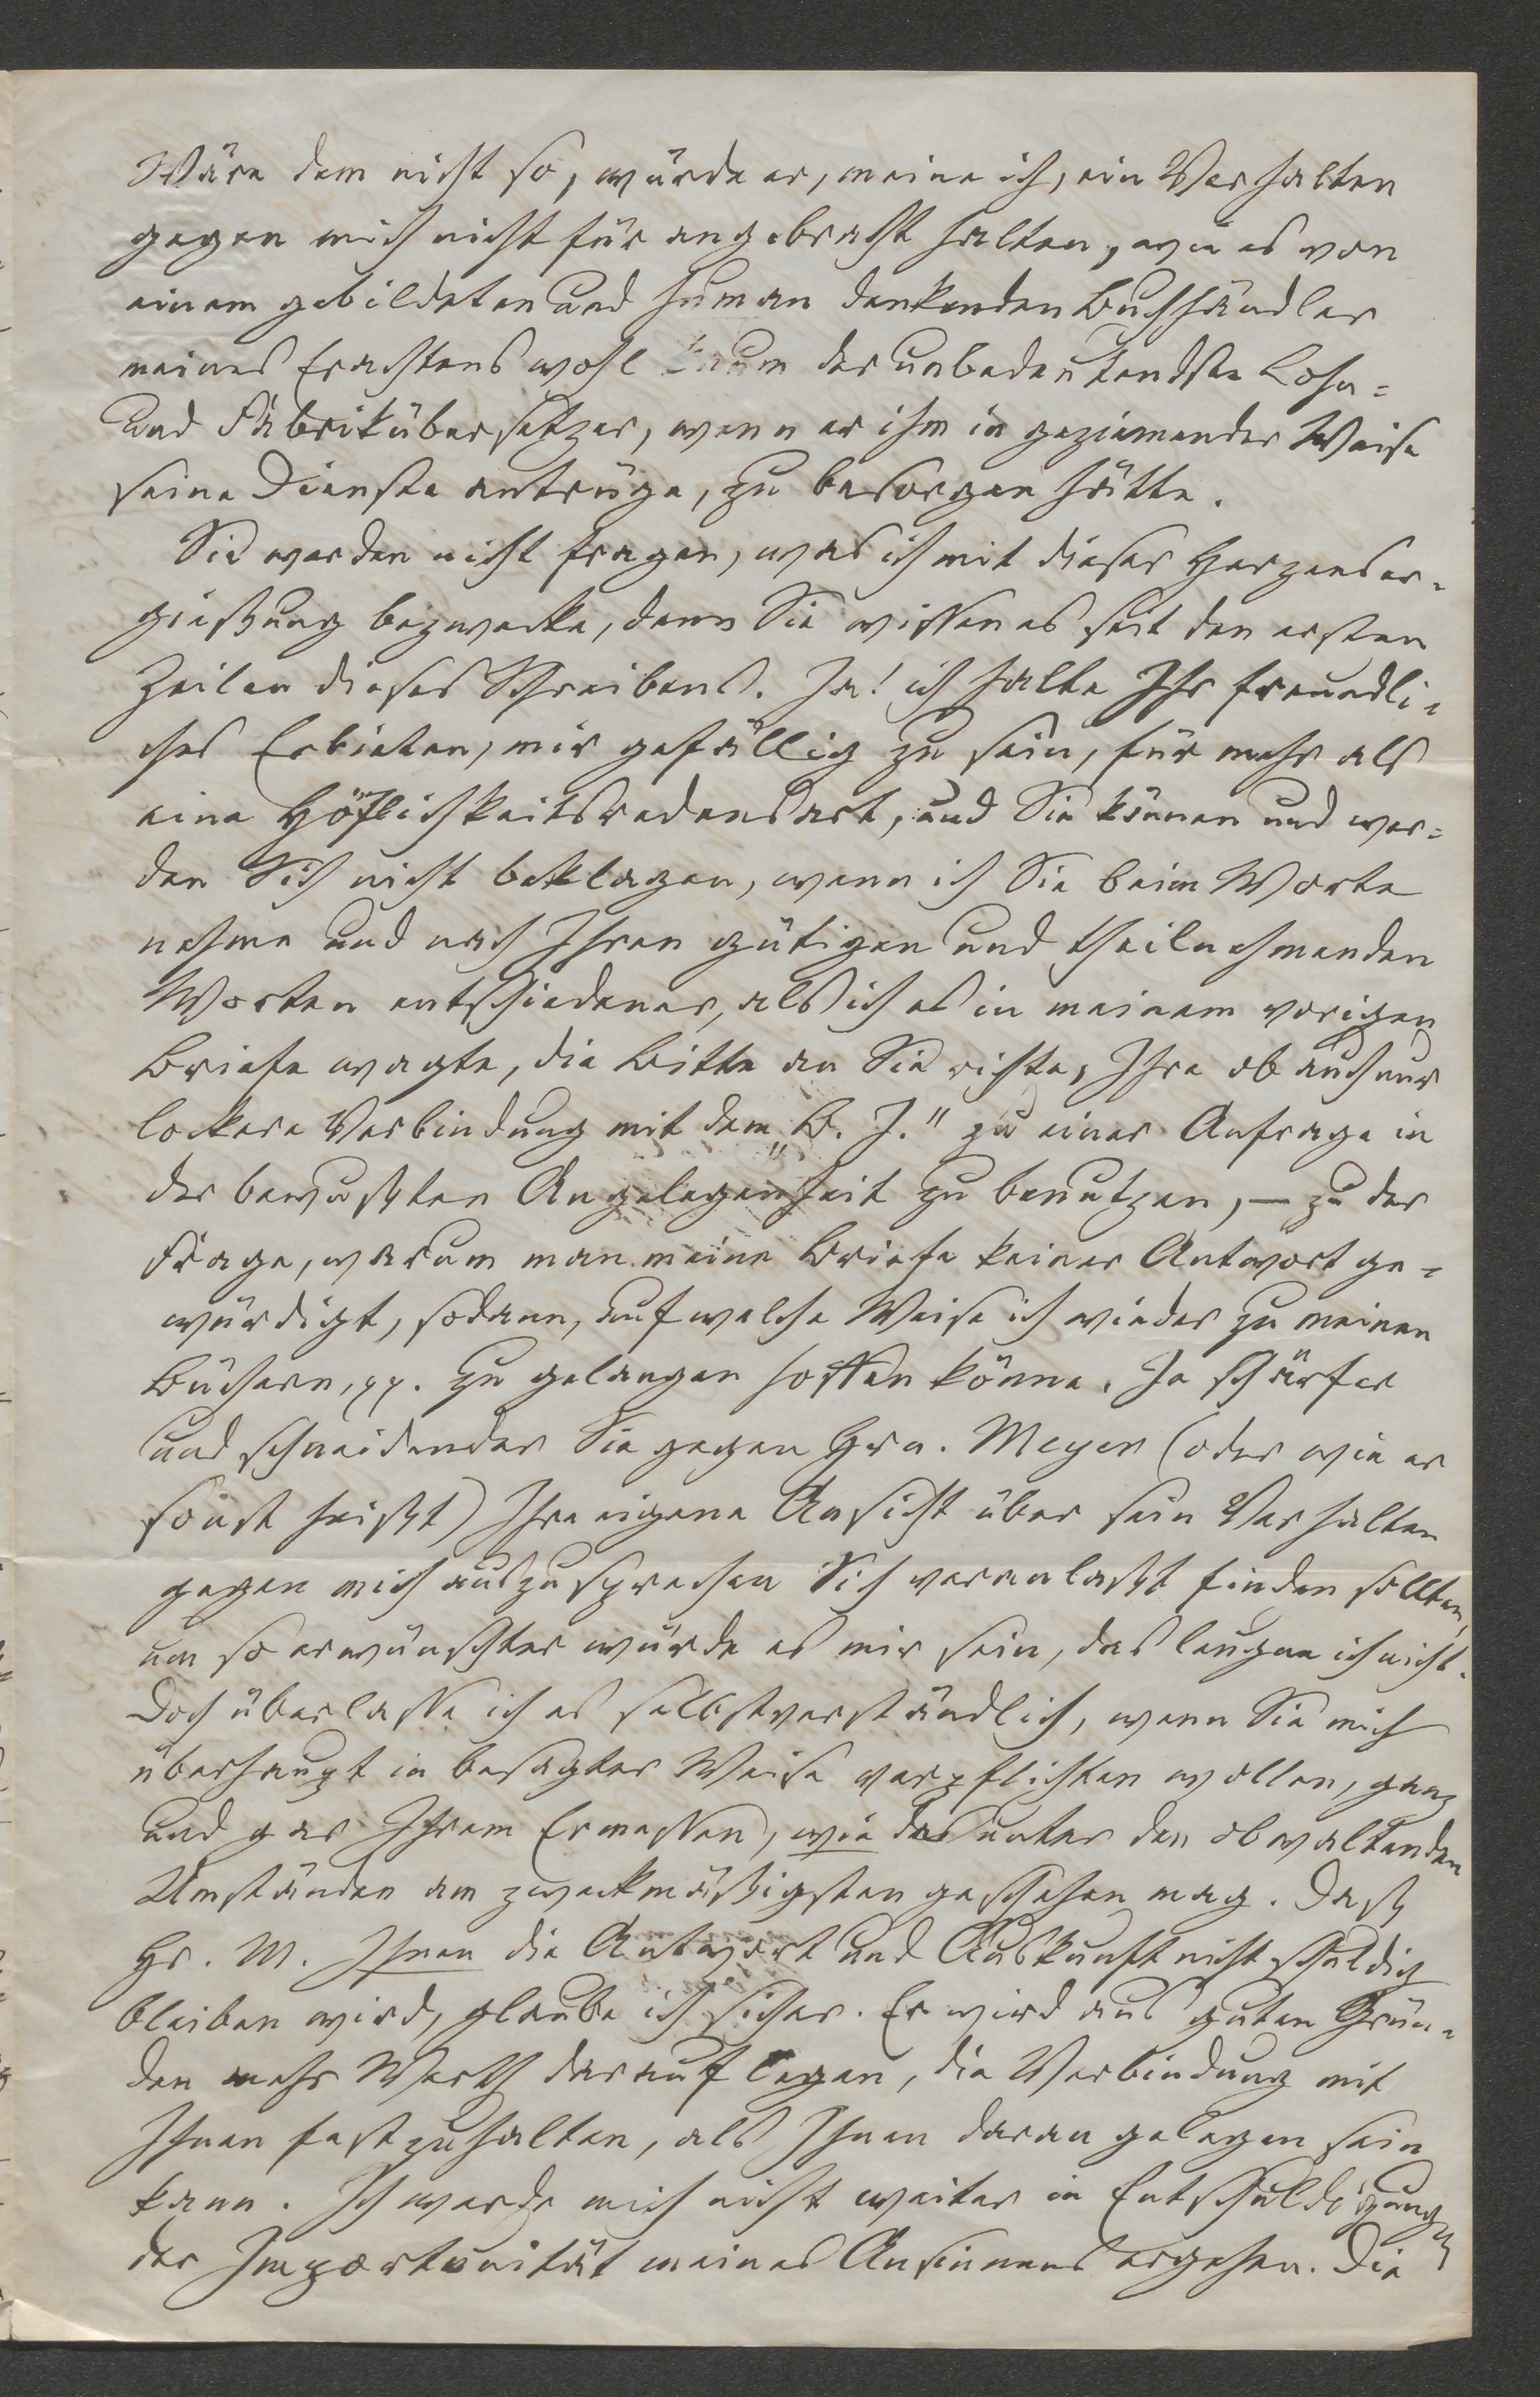 Wäre dem nicht so, würde er, meine ich, ein Verhalten
gegen mich nicht für angebracht halten, wie es von
einem gebildeten und human denkenden Buchhändler
meines Erachtens wohl kaum der unbedeutendste Lohn-
und Fabrikübersetzer, wenn er ihm in geziemender Weise
seine Dienste antrüge, zu besorgen hätte.
Sie werden nicht fragen, was ich mit dieser Herzenser-
gießung bezwecke, denn Sie wissen es seit den ersten
Zeilen dieses Schreibens. Ja! ich halte Ihr freundli-
ches Erbieten, mir gefällig zu sein, für mehr als
eine Höflichkeitsredensart, und Sie können und wer-
den Sich nicht beklagen, wenn ich Sie beim Worte
nehme und nach Ihren gütigen und theilnehmenden
Worten entschiedener, als ich es in meinem vorigen
Briefe wagte, die Bitte an Sie richte, Ihre ob auch nur
lockere Verbindung mit dem „B. J." zu einer Anfrage in
der bewußten Angelegenheit zu benutzen, — zu der
Frage, warum man meine Briefe keiner Antwort ge-
würdigt, sodann, auf welche Weise ich wieder zu meinen
Büchern, pp. zu gelangen hoffen könne. Je schärfer
und schneidender Sie gegen Hrn. Meyer (oder wie er
sonst heißt) Ihre eigene Ansicht über sein Verhalten
gegen mich auszusprechen Sich veranlaßt finden sollten,
um so erwünschter würde es mir sein, das leugne ich nicht.
Doch überlasse ich es selbstverständlich, wenn Sie mich
überhaupt in besagter Weise verpflichten wollen, ganz
und gar Ihrem Ermessen, wie das unter den obwaltenden
Umständen am zweckmäßigsten geschehen mag. Daß
Hr. M. Ihnen die Antwort und Auskunft nicht schuldig
bleiben wird, glaube ich sicher. Er wird aus guten Grün-
den mehr Werth darauf legen, die Verbindung mit
Ihnen festzuhalten, als Ihnen daran gelegen sein
kann. Ich werde mich nicht weiter in Entschuldigungen
der Importunität meines Ansinnens ergehen. Die